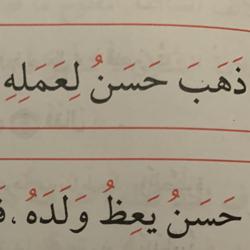 ذَهَبَ حَسَنُ لِعَمَلِهِ
حَسَنُ يَعِظُ وَلَدَهُ،